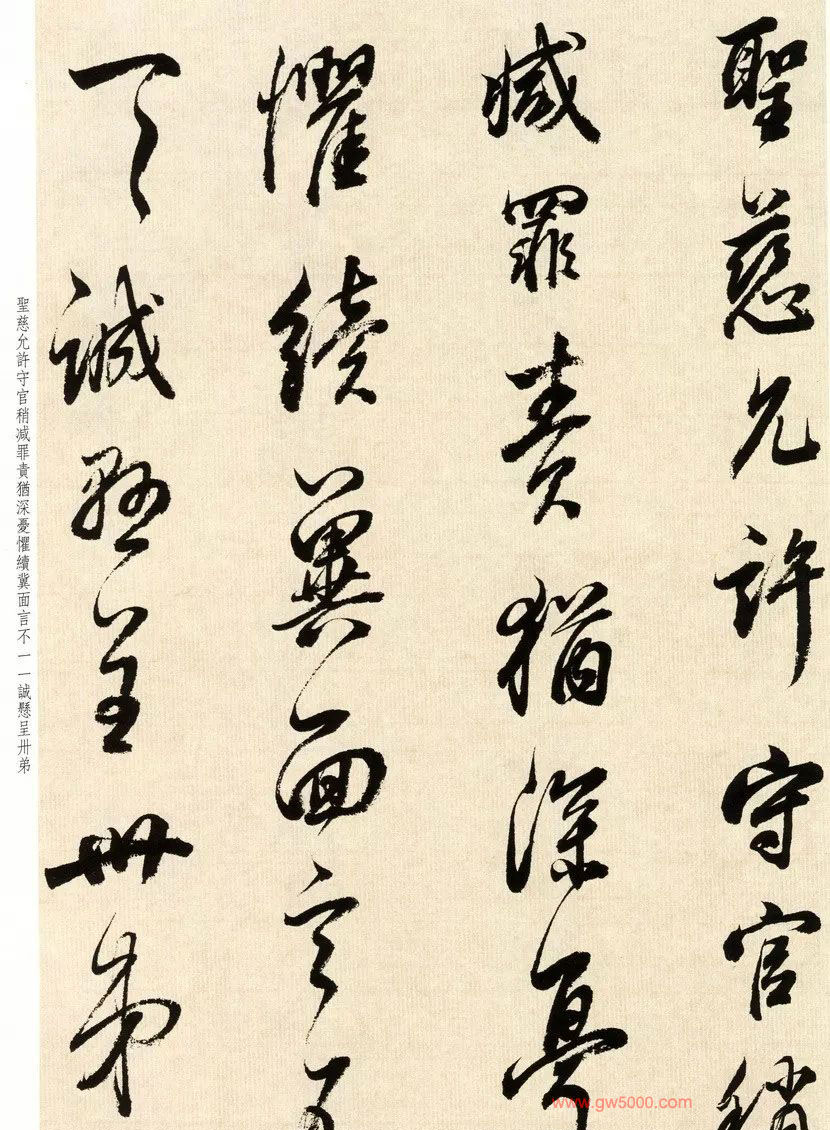 聖慈允許守官稍
減罪責猶深憂
懼續冀面言不
一一誠懸呈卅弟
聖慈允許守官稍减罪責猶深憂懼續冀面言不一一誠懸呈卅弟
www.gw5000.com